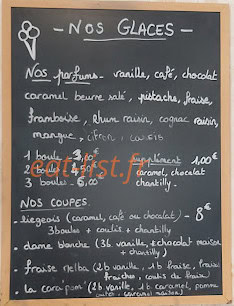 - NOS GLACES -
Nos parfums - vanille, café, chocolat
caramel beurre salé, pistache, fraise,
framboise, Rhum raisin, cognac raisin,
mangue, citron, cassis
1 boule
2 boules
3 boules : 6,00
Supplément 1,00€
caramel, chocolat
chantilly.
eat-list.fr
NOS COUPES.
- liegeois (caramel, café ou chocolat) - 8€
3 boules + coulis + chantilly
- dame blanche (3b vanille, chocolat maison
+ chantilly)
- fraise melba (2b vanille, 1b fraise, fraises
fraîches, coulis de fraise)
- la (2b vanille, 1b caramel, pomme
caramel maison